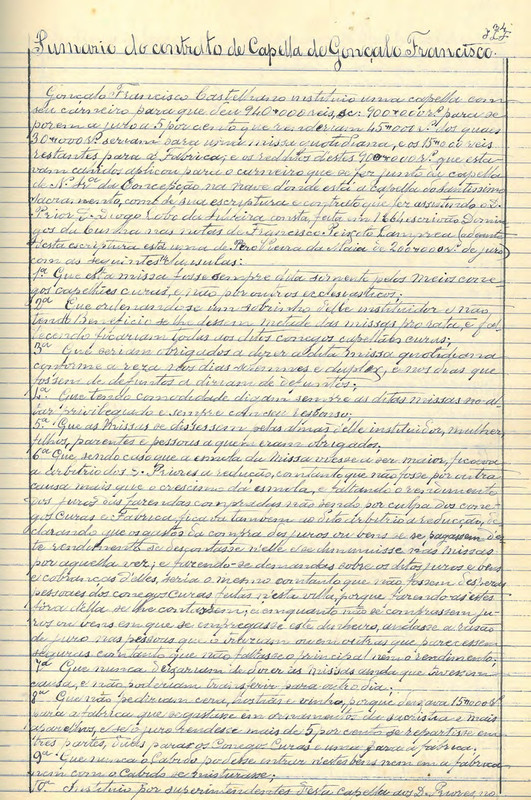 Sumario do contrato de Capella de Gonçalo Francisco.
Gonçalo Francisco Castelhano instituio uma capella com
seu carneiro para que deu 940$000 reis, sc. 900$000 rs. para se
porem a juro a 5 por cento que renderiam 45$000 rs. dos quais
30$000 rs. seriam para uma missa quotidiana, e os 15$000 reis
restantes para a Fabrica, e os reditos destes 900$000 rs. que esta-
vam caridos applicou para o carneiro que se fez junto á capella
de N. Sra. da Conceição na nave donde está a capella do Santissimo
Sacramento, como de sua escriptura e contrato que fez assistindo o D.
Prior D. Diogo Lobo da Silveira consta, feita em 1664 escrivão Domin-
gos da Cunha nas notas de Francisco Peixoto
desta escriptura está uma de Pero Vieira da Maia de 200$000 rs. de juro
com as seguintes clausulas:
1ª Que esta missa fosse sempre dita sómente pelos meios cone-
gos capellães curas, e não por outros ecclesiasticos;
2ª Que ordenando-se um sobrinho delle instituidor e não
tendo beneficio se lhe dessem metade das missas pro rata, e fal-
lecendo ficariam todas aos ditos conegos capellães curas;
3ª Que seriam obrigados a dizer a dita missa quotidiana
conforme a reza nos dias solemnes e duplex, e nos dias que
fossem de defuntos a diriam de defuntos;
4ª Que tendo comodidade digam sempre as ditas missas no al-
tar privilegiado e sempre com seu responso;
5ª Que as missas se dissessem pelas almas delle instituidor, mulher,
filhos, parentes e pessoas a quem eram obrigados;
6ª Que sendo caso que a esmola da missa viesse a ser maior, ficava
a arbitrio dos D. Priores a reducção, contanto que não fosse por outra
causa mais que o crescimo da esmola, e faltando o rendimento
dos juros ou fazendas compradas não sendo por culpa dos cone-
gos Curas e Fabrica ficava tambem ao dito arbitrio a reducção, de-
clarando que os gastos da compra dos juros ou bens se pagassem des-
te rendimento se descontasse nelle e se diminuisse nas missas
por aquella vez; e fazendo-se demandas sobre os ditos juros e bens
e cobranças delles, seria o mesmo contanto que não fossem despezas
pessoaes dos conegos Curas feitas nesta villa, porque fazendo as estes
fóra della se lhe contassem; e emquanto não se comprassem ju-
ros ou bens em que se empregasse este dinheiro, andasse a rasão
de juro nas pessoas que o tiveram ou em outras que parecessem
seguras contanto que não faltasse o principal nem o rendimento;
7ª Que nunca deixariam de dizer as missas ainda que tivessem
causa, e não poderiam transferir para outro dia;
8ª Que não pediriam cera, hostias e vinho, porque deixava 15$000 rs.
para a fabrica que se gastasse em ornamentos da sacristia e mais
aparelhos, e se o juro rendesse mais de 5 por cento se repartisse em
tres partes, duas para os Conegos Curas e uma para a fabrica,
9ª Que nunca o Cabido podesse entrar nestes bens nem em a fabrica
nem com o Cabido se misturasse;
10ª Instituio por superintendentes desta capella aos D. Priores no